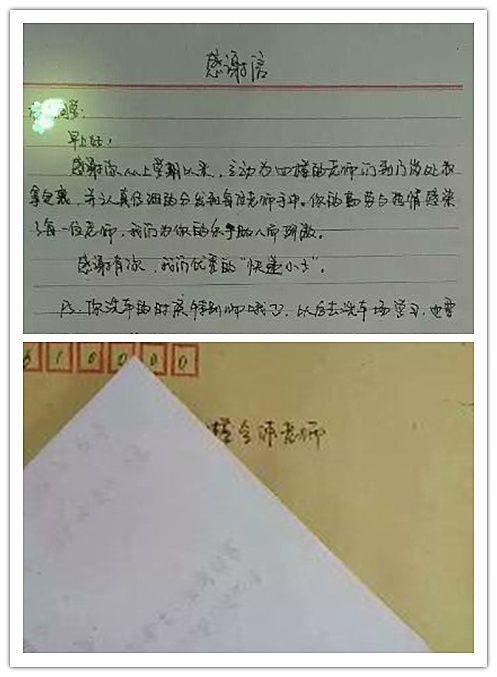 感谢信
同学：
早上好！
感谢你从上学期以来，主动为四楼的老师们到门岗处取
拿包裹，并认真仔细的分发到每位老师手中。你的勤劳与热情感染
了每一位老师，我们为你的乐于助人而骄傲。
感谢有你，我们优秀的“快递小哥”。
Ps：你洗车的时候特别帅哦！以后去洗车场学习，也要
610000
楼全体老师